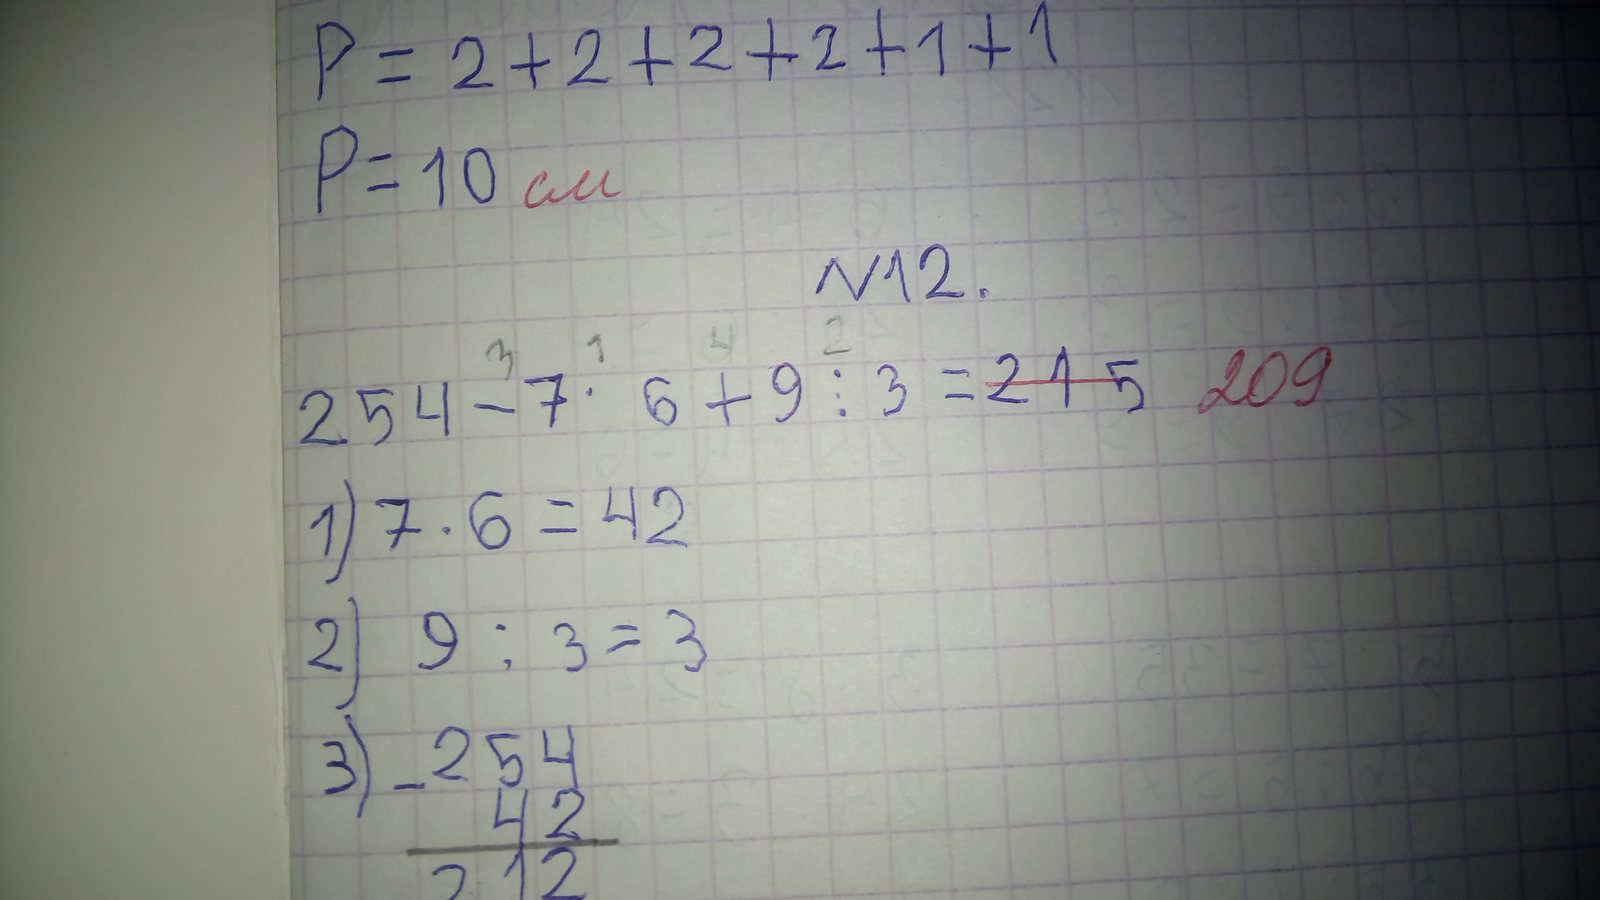 P = 2 + 2 + 2 + 2 + 1 + 1
P = 10 см
N12.
3 1 4 2
254 - 7 · 6 + 9 : 3 = 215 209
1) 7 · 6 = 42
2) 9 : 3 = 3
3) - 254
42
212